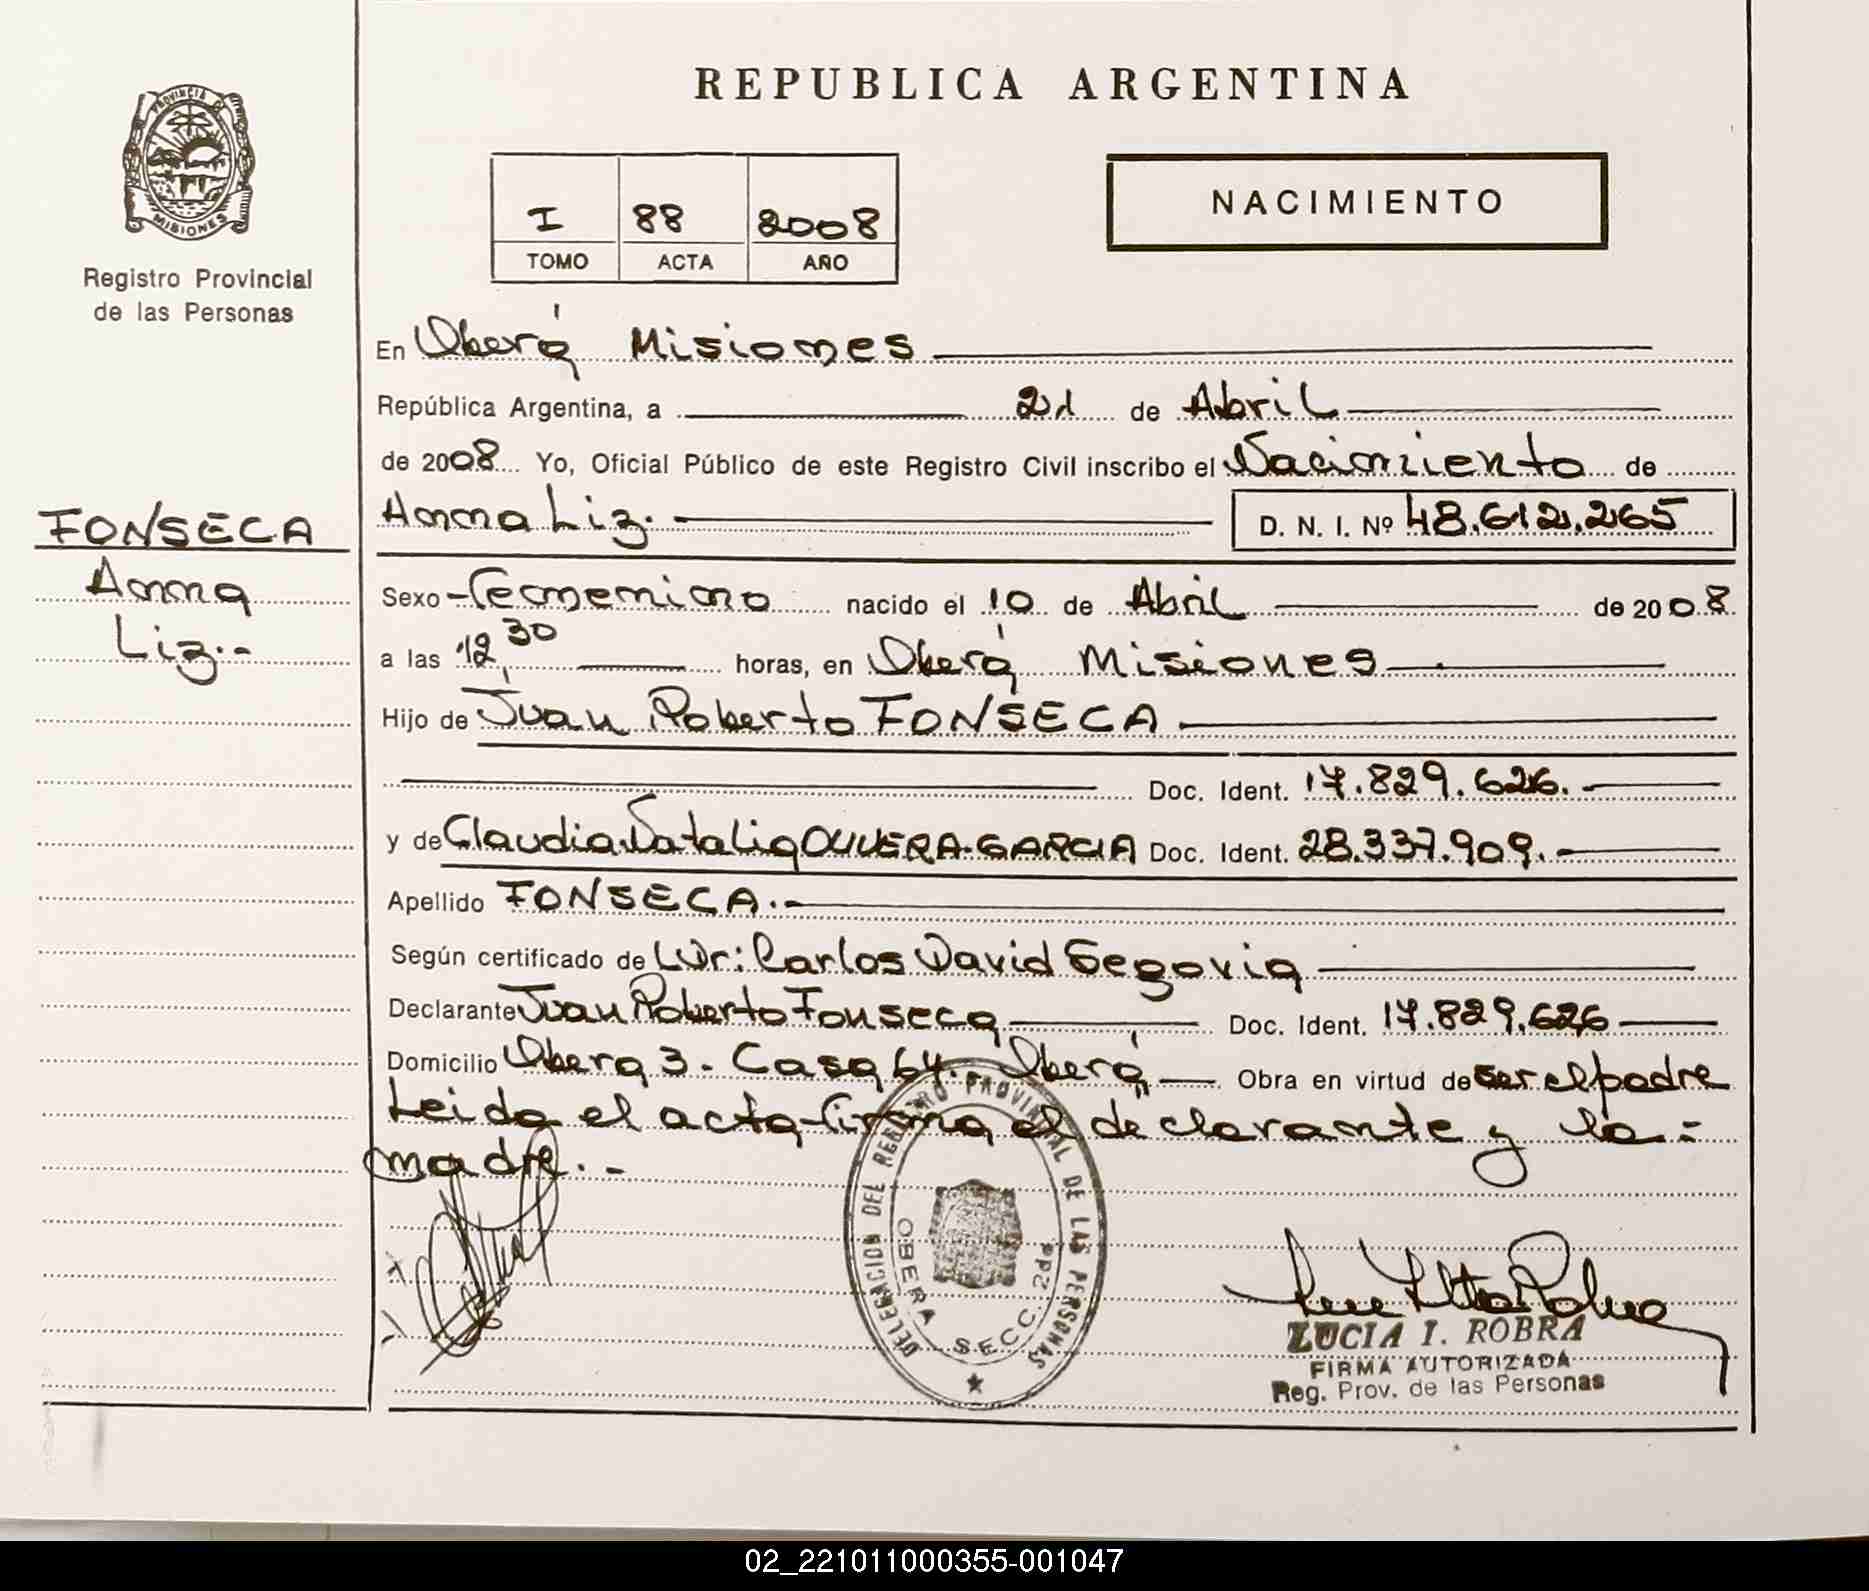 REPUBLICA ARGENTINA
PROVINCIA D
MISIONES
Registro Provincial
de las Personas
NACIMIENTO
I 88 2008
TOMO ACTA AÑO
En Oberá Misiones
República Argentina, a 21 de Abril
de 2008 Yo, Oficial Público de este Registro Civil inscribo el Nacimiento de
Anna Liz.- D. N. I. Nº 48.612.265
FONSECA
Anna
Liz.-
Sexo Femenino nacido el 10 de Abril de 2008
a las 12,30 horas, en Oberá Misiones
Hijo de Juan Roberto FONSECA
Doc. Ident. 17.829.626.-
y de Claudia Natalia OLIVERA GARCIA Doc. Ident. 28.337.909.-
Apellido FONSECA.-
Según certificado de Dr: Carlos David Segovia
Declarante Juan Roberto Fonseca Doc. Ident. 17.829.626
Domicilio Obera 3. Casa 64. Oberá Obra en virtud de ser el padre
Leido el acta firma el declarante y la=
madre.-
DELEGACION DEL REGISTRO PROVINCIAL DE LAS PERSONAS
OBERA SECC. 2da
LUCIA I. ROBRA
FIRMA AUTORIZADA
Reg. Prov. de las Personas
02_221011000355-001047